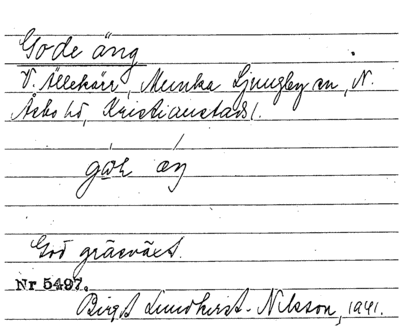 Gode äng
V. Ällekärr, Munka Ljungby sn, N.
Åsbo hd, Kristianstads l.
God gräsväxt.
Nr 5497.
Birgit Lundkvist-Nilsson, 1941.